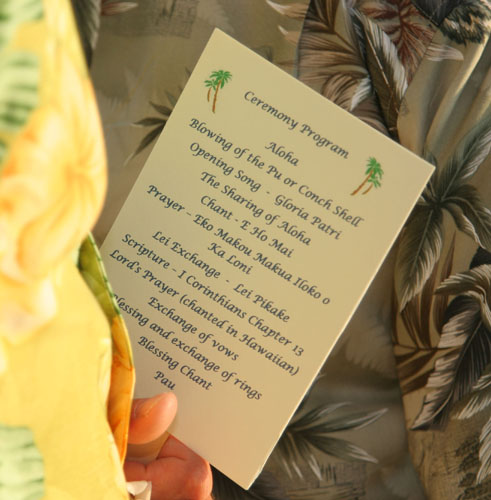 Ceremony Program
Aloha
Blowing of the Pu or Conch Shell
Opening Song - Gloria Patri
The Sharing of Aloha
Chant - E Ho Mai
Prayer - Eko Makou Makua Iloko o
Ka Loni
Lei Exchange - Lei Pikake
Scripture - I Corinthians Chapter 13
Lord's Prayer (chanted in Hawaiian)
Exchange of vows
Blessing and exchange of rings
Blessing Chant
Pau